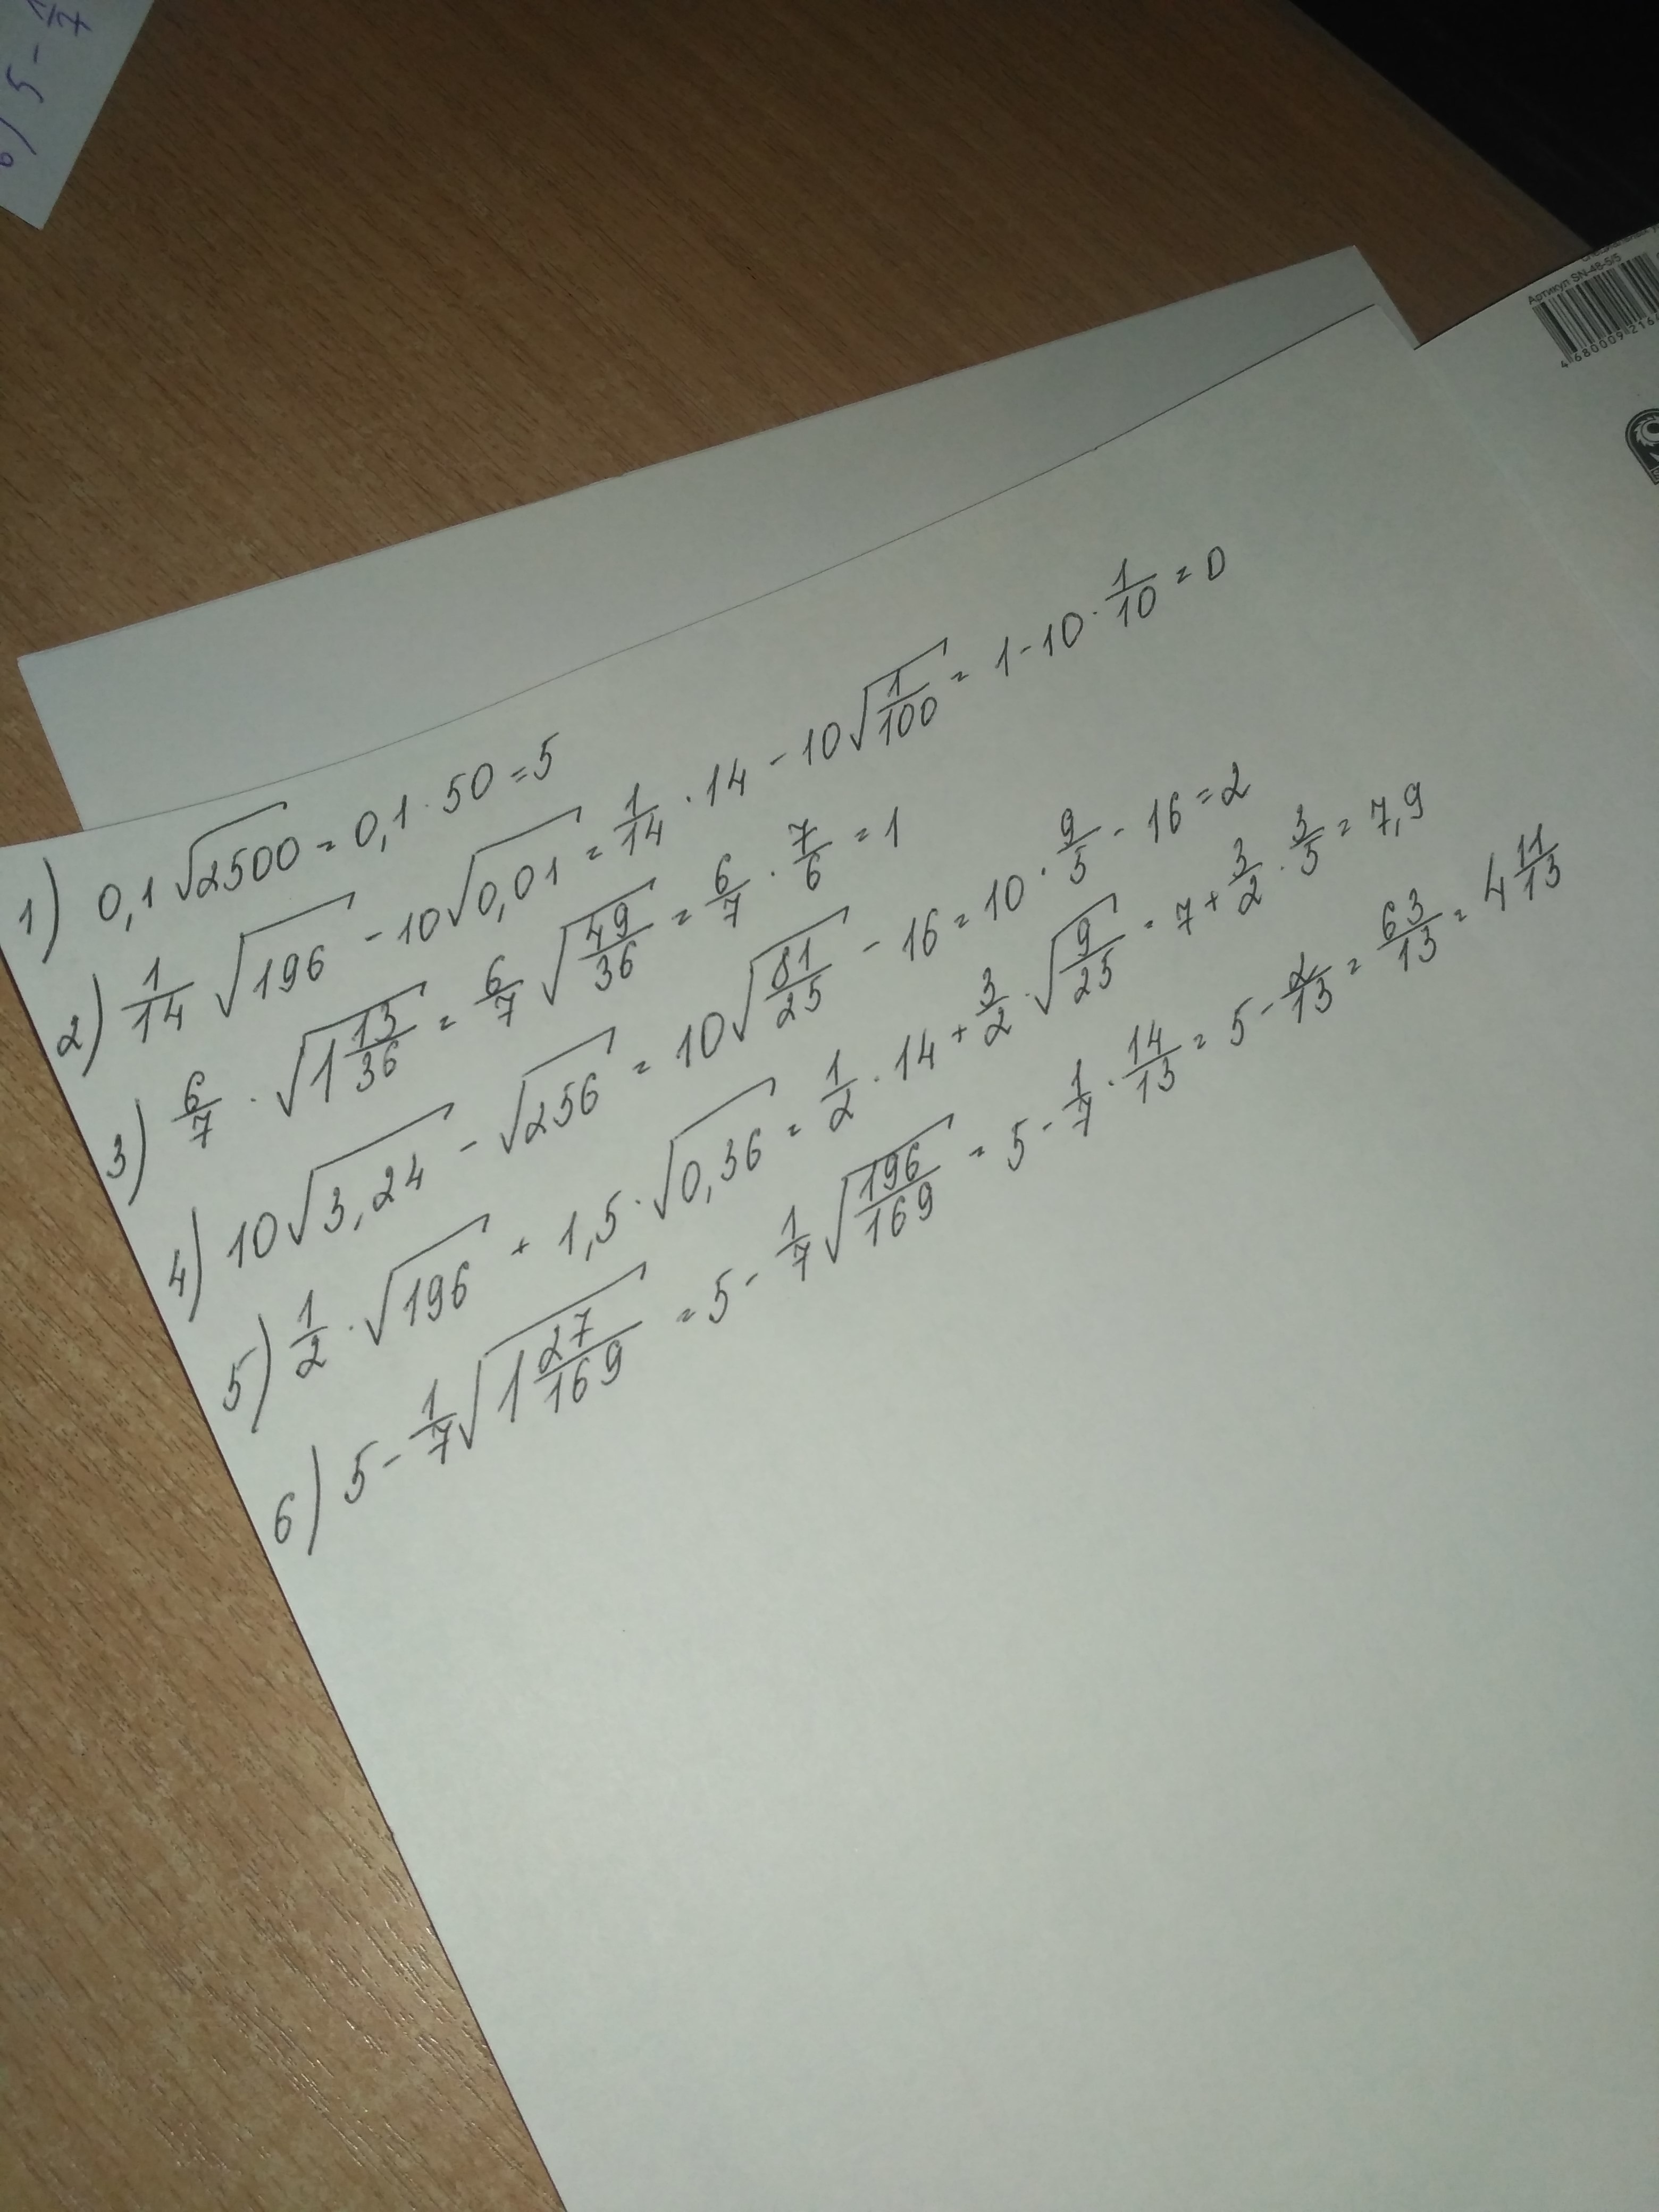 6) 5 - 1/7
Артикул SN-48-5/5
1) 0,1 √2500 = 0,1 · 50 = 5
2) 1/14 √196 - 10√0,01 = 1/14 · 14 - 10√(1/100) = 1 - 10 · 1/10 = 0
3) 6/7 · √(1 13/36) = 6/7 √(49/36) = 6/7 · 7/6 = 1
4) 10√3,24 - √256 = 10√(81/25) - 16 = 10 · 9/5 - 16 = 2
5) 1/2 · √196 + 1,5 · √0,36 = 1/2 · 14 + 3/2 · √(9/25) = 7 + 3/2 · 3/5 = 7,9
6) 5 - 1/7 √(1 27/169) = 5 - 1/7 √(196/169) = 5 - 1/7 · 14/13 = 5 - 2/13 = 63/13 = 4 11/13